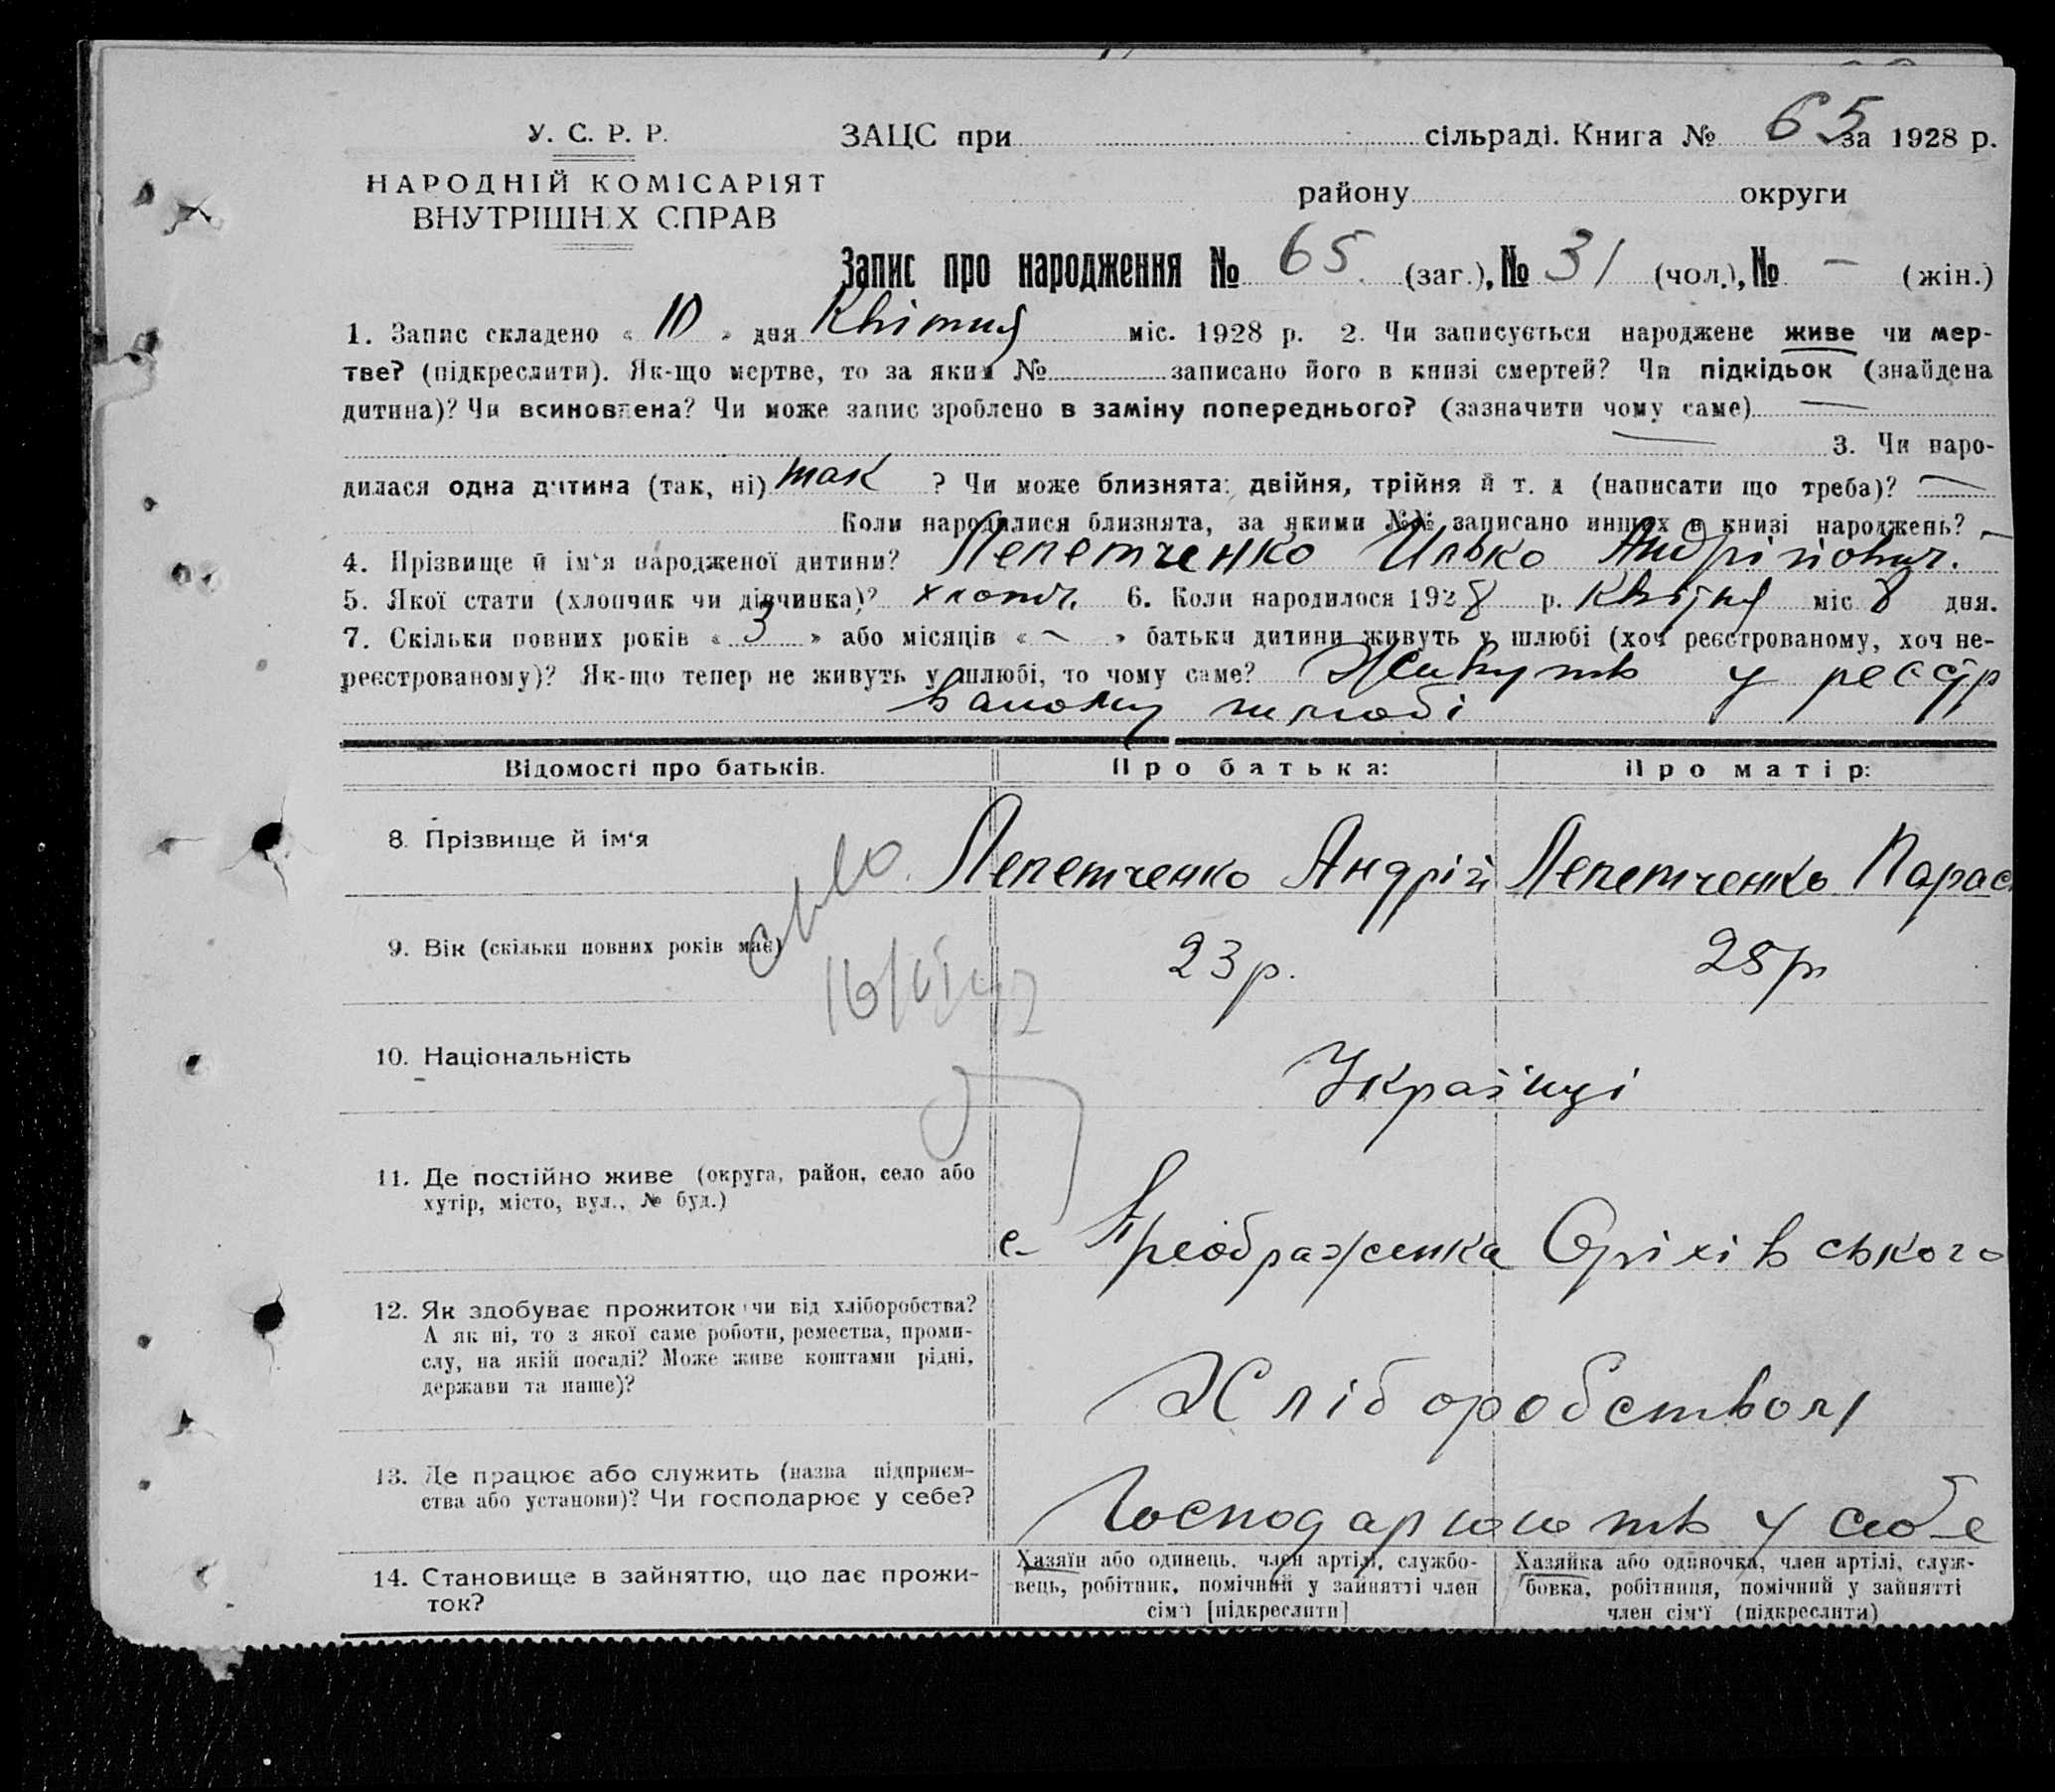 У. С. Р. Р.
НАРОДНІЙ КОМІСАРІЯТ
ВНУТРІШНІХ СПРАВ
ЗАЦС при сільраді. Книга № 65 за 1928 р.
району округи
Запис про народження № 65 (заг.), № 31 (чол.), № — (жін.)
1. Запис складено « 10 » дня Квітня міс. 1928 р. 2. Чи записується народжене живе чи мер-
тве? (підкреслити). Як-що мертве, то за яким № записано його в книзі смертей? Чи підкідьок (знайдена
дитина)? Чи всиновлена? Чи може запис зроблено в заміну попереднього? (зазначити чому саме) —
— 3. Чи наро-
дилася одна дитина (так, ні) так ? Чи може близнята: двійня, трійня й т. д (написати що треба)? —
Коли народилися близнята, за якими №№ записано инших в книзі народжень? —
4. Прізвище й ім‘я народженої дитини? Лепетченко Илько Андрійович.
5. Якої стати (хлопчик чи дівчинка)? хлопч. 6. Коли народилося 1928 р. Квітня міс 8 дня.
7. Скільки повних років « 3 » або місяців « — » батьки дитини живуть у шлюбі (хоч реєстрованому, хоч не-
реєстрованому)? Як-що тепер не живуть у шлюбі, то чому саме? Живуть у реєстр
ваному шлюбі
Відомості про батьків. Про батька: Про матір:
8. Прізвище й ім‘я Лепетченко Андрій Лепетченко Парас
9. Вік (скільки повних років має) 23 р. 28 р.
10. Національність Українці
11. Де постійно живе (округа, район, село або
хутір, місто, вул., № буд.)
с. Преображенка Оріхівського
12. Як здобуває прожиток чи від хліборобства?
А як ні, то з якої саме роботи, ремества, проми-
слу, на якій посаді? Може живе коштами рідні,
держави та инше)?
Хліборобством
13. Де працює або служить (назва підприєм-
ства або установи)? Чи господарює у себе?
Господарюють у себе
14. Становище в зайняттю, що дає прожи-
ток?
Хазяїн або одинець, член артілі, службо-
вець, робітник, помічний у зайнятті член
сім‘ї [підкреслити]
Хазяйка або одиночка, член артілі, служ-
бовка, робітниця, помічний у зайнятті
член сім‘ї (підкреслити)